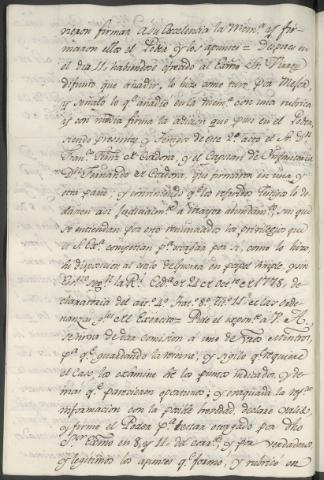 vieron firmar a Su Excelencia la Mem.ª y fir-
maron ellos el Poder y los apuntes = Despues en
el dia 11 habiendo ofrecido al Exmo Sr.
difunto que añadir, lo hizo como tuvo por
y señaló lo q.e añadio en la mem.ª con una rubrica
y con media firma la adicion que puso en el Poder,
siendo presentes y Testigos de este 2.º acto el Sr. Dn.
Fran.co de Cordova, y el Capitan de Infanteria
Dn. Fernando de Cordova, que firmaron en una, y
otra parte; y conviniendo q.e los referidos Testigos lo de-
claren asi judicialm.te a mayor abundam.to, sin que
se entiendan por esto renunciados los privilegios que
a S.E. competian p.ª otorgar por si, como lo hizo,
la disposicion al arvitrio en papel simple, y sin
seg.n la R.l Ced.ª de 24 de oct.re de 1778, de-
claratoria del art.º 4.º Trat.º 8.º Tit. 11 de las orde-
nanzas g.les del Exercito = Pide el expon.te a V.A.
se sirva de dar comision a uno de sus Ministros,
p.ª q.e guardando la misma, y sigilo q.e requiere
el caso, los examine de los puntos indicados, y de-
mas q.e parecieren oportunos; y evaquada la
informacion con la posible brevedad, declare valido
y firme el Poder p.ª testar otorgado por dho
Exmo en 8, y 11 de y por verdaderos,
y legitimos los apuntes q.e formó, y rubricó en